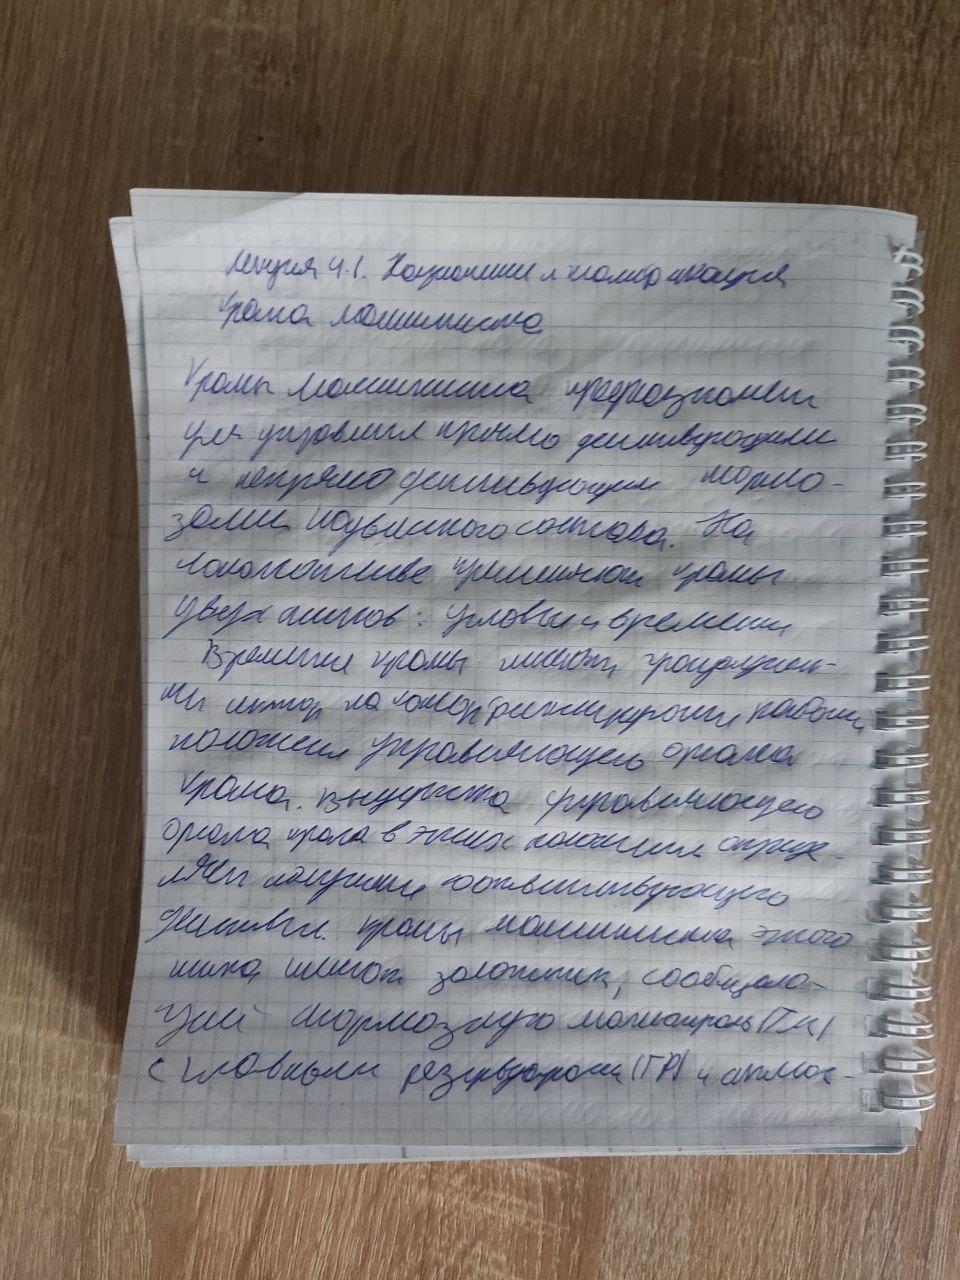 Лекция 4.1. Назначение и классификация
крана машиниста
Краны машиниста предназначен
для управления прямо действующими
и непрямодействующим тормо-
зами подвижного состава. На
локомотиве применяют краны
двух типов: угловые и времени
Времени краны имеют градуирован-
на фиксированы рабочие
положения управляющего органа
крана. управляющего
органа крана в этих положениях опреде-
ляет соответствующего
действия. краны машиниста этого
типа имеют золотник, сообщаю-
щий тормозную магистраль (ТМ)
с главными резервуарами (ГР) и атмос-